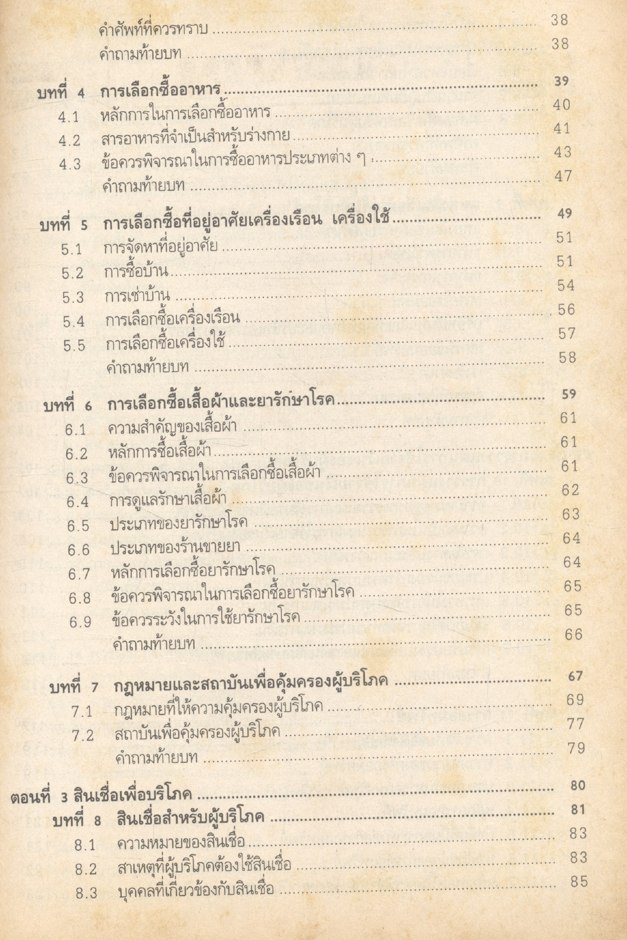 คำศัพท์ที่ควรทราบ ........ 38
คำถามท้ายบท ........ 38
บทที่ 4 การเลือกซื้ออาหาร ........ 39
4.1 หลักการในการเลือกซื้ออาหาร ........ 40
4.2 สารอาหารที่จำเป็นสำหรับร่างกาย ........ 41
4.3 ข้อควรพิจารณาในการซื้ออาหารประเภทต่าง ๆ ........ 43
คำถามท้ายบท ........ 47
บทที่ 5 การเลือกซื้อที่อยู่อาศัยเครื่องเรือน เครื่องใช้ ........ 49
5.1 การจัดหาที่อยู่อาศัย ........ 51
5.2 การซื้อบ้าน ........ 51
5.3 การเช่าบ้าน ........ 54
5.4 การเลือกซื้อเครื่องเรือน ........ 56
5.5 การเลือกซื้อเครื่องใช้ ........ 57
คำถามท้ายบท ........ 58
บทที่ 6 การเลือกซื้อเสื้อผ้าและยารักษาโรค ........ 59
6.1 ความสำคัญของเสื้อผ้า ........ 61
6.2 หลักการซื้อเสื้อผ้า ........ 61
6.3 ข้อควรพิจารณาในการเลือกซื้อเสื้อผ้า ........ 61
6.4 การดูแลรักษาเสื้อผ้า ........ 62
6.5 ประเภทของยารักษาโรค ........ 63
6.6 ประเภทของร้านขายยา ........ 64
6.7 หลักการเลือกซื้อยารักษาโรค ........ 64
6.8 ข้อควรพิจารณาในการเลือกซื้อยารักษาโรค ........ 65
6.9 ข้อควรระวังในการใช้ยารักษาโรค ........ 65
คำถามท้ายบท ........ 66
บทที่ 7 กฎหมายและสถาบันเพื่อคุ้มครองผู้บริโภค ........ 67
7.1 กฎหมายที่ให้ความคุ้มครองผู้บริโภค ........ 69
7.2 สถาบันเพื่อคุ้มครองผู้บริโภค ........ 77
คำถามท้ายบท ........ 79
ตอนที่ 3 สินเชื่อเพื่อบริโภค ........ 80
บทที่ 8 สินเชื่อสำหรับผู้บริโภค ........ 81
8.1 ความหมายของสินเชื่อ ........ 83
8.2 สาเหตุที่ผู้บริโภคต้องใช้สินเชื่อ ........ 83
8.3 บุคคลที่เกี่ยวข้องกับสินเชื่อ ........ 85